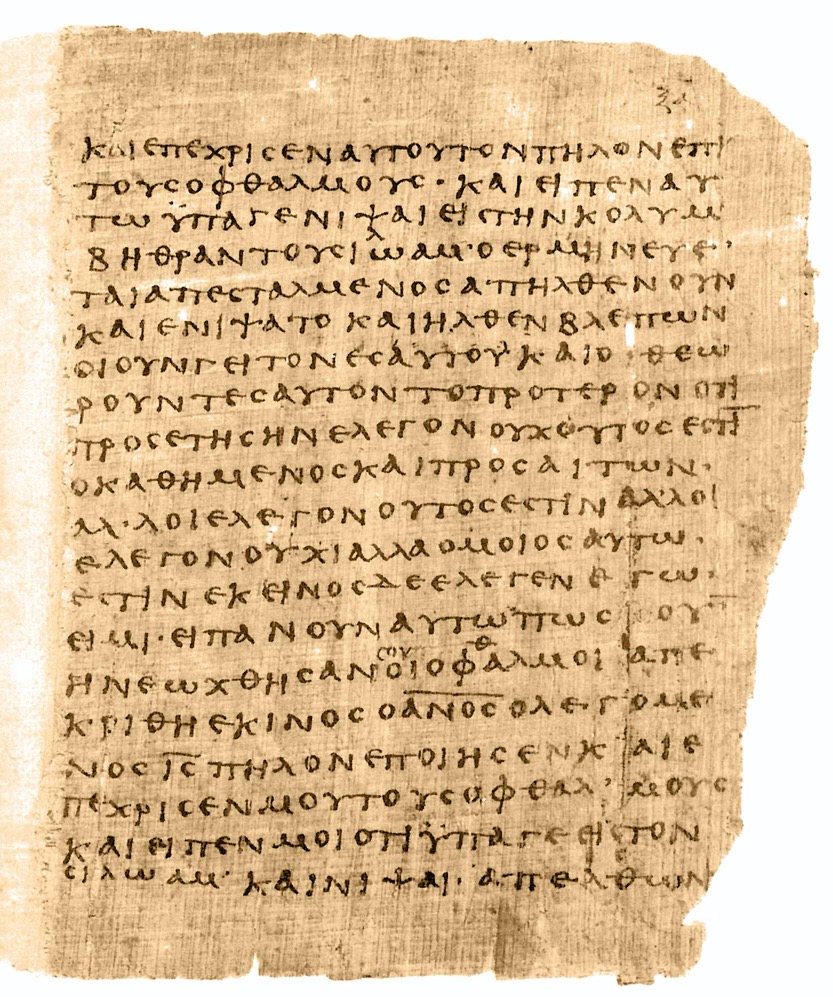 ΚΑΙΕΠΕΧΡΙϹΕΝΑΥΤΟΥΤΟΝΠΗΛΟΝΕΠΙ
ΤΟΥϹΟΦΘΑΛΜΟΥϹ· ΚΑΙΕΙΠΕΝΑΥ
ΤΩ ΫΠΑΓΕΝΙΨΑΙΕΙϹΤΗΝΚΟΛΥΜ
ΒΗΘΡΑΝΤΟΥϹΙΛΩΑΜ·ΟΕΡΜΗΝΕΥΕ·
ΤΑΙΑΠΕϹΤΑΛΜΕΝΟϹΑΠΗΛΘΕΝΟΥΝ
ΚΑΙΕΝΙΨΑΤΟ ΚΑΙΗΛΘΕΝΒΛΕΠΩΝ
ΟΙΟΥΝΓΕΙΤΟΝΕϹΑΥΤΟΥ·ΚΑΙΟΙΘΕΩ
ΡΟΥΝΤΕϹΑΥΤΟΝΤΟΠΡΟΤΕΡΟΝΟΤΙ
ΠΡΟϹΕΤΗϹΗΝΕΛΕΓΟΝΟΥΧΟΥΤΟϹΕϹΤΙ̅
ΟΚΑΘΗΜΕΝΟϹΚΑΙΠΡΟϹΑΙΤΩΝ·
ΑΛ·ΛΟΙΕΛΕΓΟΝΟΥΤΟϹΕϹΤΙΝΑΛΛΟΙ
ΕΛΕΓΟΝΟΥΧΙΑΛΛΑΟΜΟΙΟϹΑΥΤΩ·
ΕϹΤΙΝΕΚΕΙΝΟϹΔΕΕΛΕΓΕΝΕΓΩ·
ΕΙΜΙ·ΕΙΠΑΝΟΥΝΑΥΤΩΠΩϹΟΥ̅
ΗΝΕΩΧΘΗϹΑΝϹΟΥΟΙΟΦΘΑΛΜΟΙΑΠΕ
ΚΡΙΘΗΕΚΙΝΟϹΟΑ̅Ν̅Ο̅Ϲ̅ΟΛΕΓΟΜΕ
ΝΟϹΙ̅Ϲ̅ΠΗΛΟΝΕΠΟΙΗϹΕΝΚΑΙΕ
ΠΕΧΡΙϹΕΝΜΟΥΤΟΥϹΟΦΘΑΛ'ΜΟΥϹ
ΚΑΙΕΙΠΕΝΜΟΙΟΤΙΫΠΑΓΕΕΙϹΤΟΝ
ϹΙΛΩΑΜ· ΚΑΙΝΙΨΑΙ· ΑΠΕΛΘΩΝ